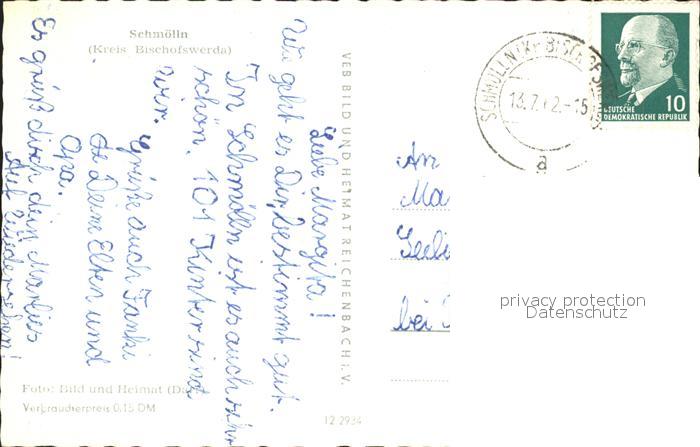 Schmölln
(Kreis Bischofswerda)
Liebe Margita!
Wie geht es Dir, bestimmt gut.
In Schmölln ist es auch sehr
schön. 101 Kinter sind
wir.
Grüße auch Tanki
de Deine Elten und
Opa.
Es grüß dich dein Marlies
Auf Wiedersehen!
VEB BILD UND HEIMAT REICHENBACH i. V.
Foto: Bild und Heimat
Verbraucherpreis 0,15 DM
12 2934
SCHMÖLLN
13.7.62.-15
a
10
DEUTSCHE
DEMOKRATISCHE REPUBLIK
An
Ma
bei
privacy protection
Datenschutz